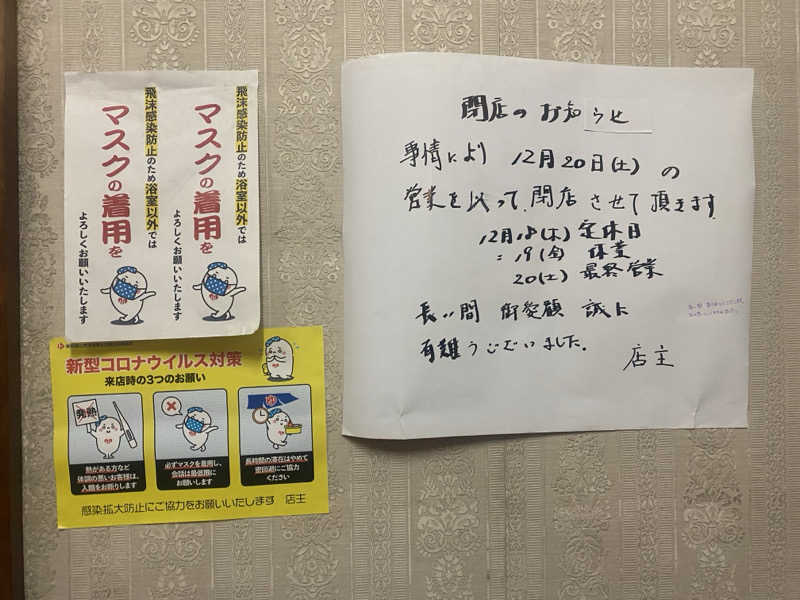 飛沫感染防止のため浴室以外では
マスクの着用を
よろしくお願いいたします
飛沫感染防止のため浴室以外では
マスクの着用を
よろしくお願いいたします
新型コロナウイルス対策
来店時の3つのお願い
発熱
熱がある方など
体調の悪いお客様は、
入館をお断りします
必ずマスクを着用し、
会話は最低限に
お願いします
ゆ
長時間の滞在はやめて
密回避にご協力
ください
感染拡大防止にご協力をお願いいたします 店主
閉店のお知らせ
事情により 12月20日(土)の
営業を以って、閉店させて頂きます
12月18(木) 定休日
〃 19(金) 休業
20(土) 最終営業
長い間 御愛顧 誠に
有難うございました。
店主